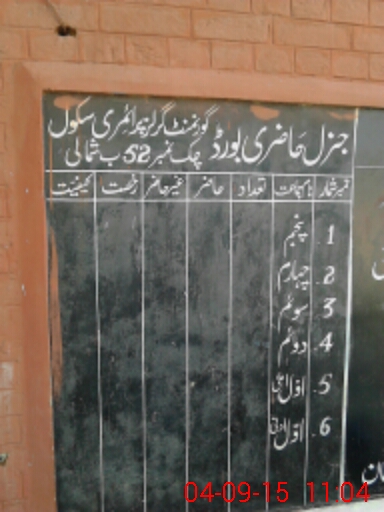 جنرل حاضری بورڈ گورنمنٹ گرلز پرائمری سکول
چک نمبر 52 ب شمالی
نمبر شمار نام جماعت تعداد حاضر غیر حاضر رخصت کیفیت
1. پنجم
2. چہارم
3. سوئم
4. دوئم
5. اوّل اعلیٰ
6. اوّل ادنیٰ
04-09-15 11:04